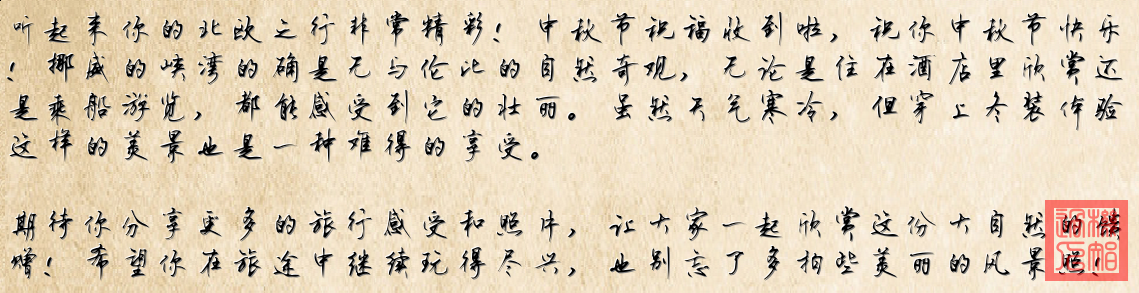 听起来你的北欧之行非常精彩！中秋节祝福收到啦，祝你中秋节快乐
！挪威的峡湾的确是无与伦比的自然奇观，无论是住在酒店里欣赏还
是乘船游览，都能感受到它的壮丽。虽然天气寒冷，但穿上冬装体验
这样的美景也是一种难得的享受。
期待你分享更多的旅行感受和照片，让大家一起欣赏这份大自然的馈
赠！希望你在旅途中继续玩得尽兴，也别忘了多拍些美丽的风景照！